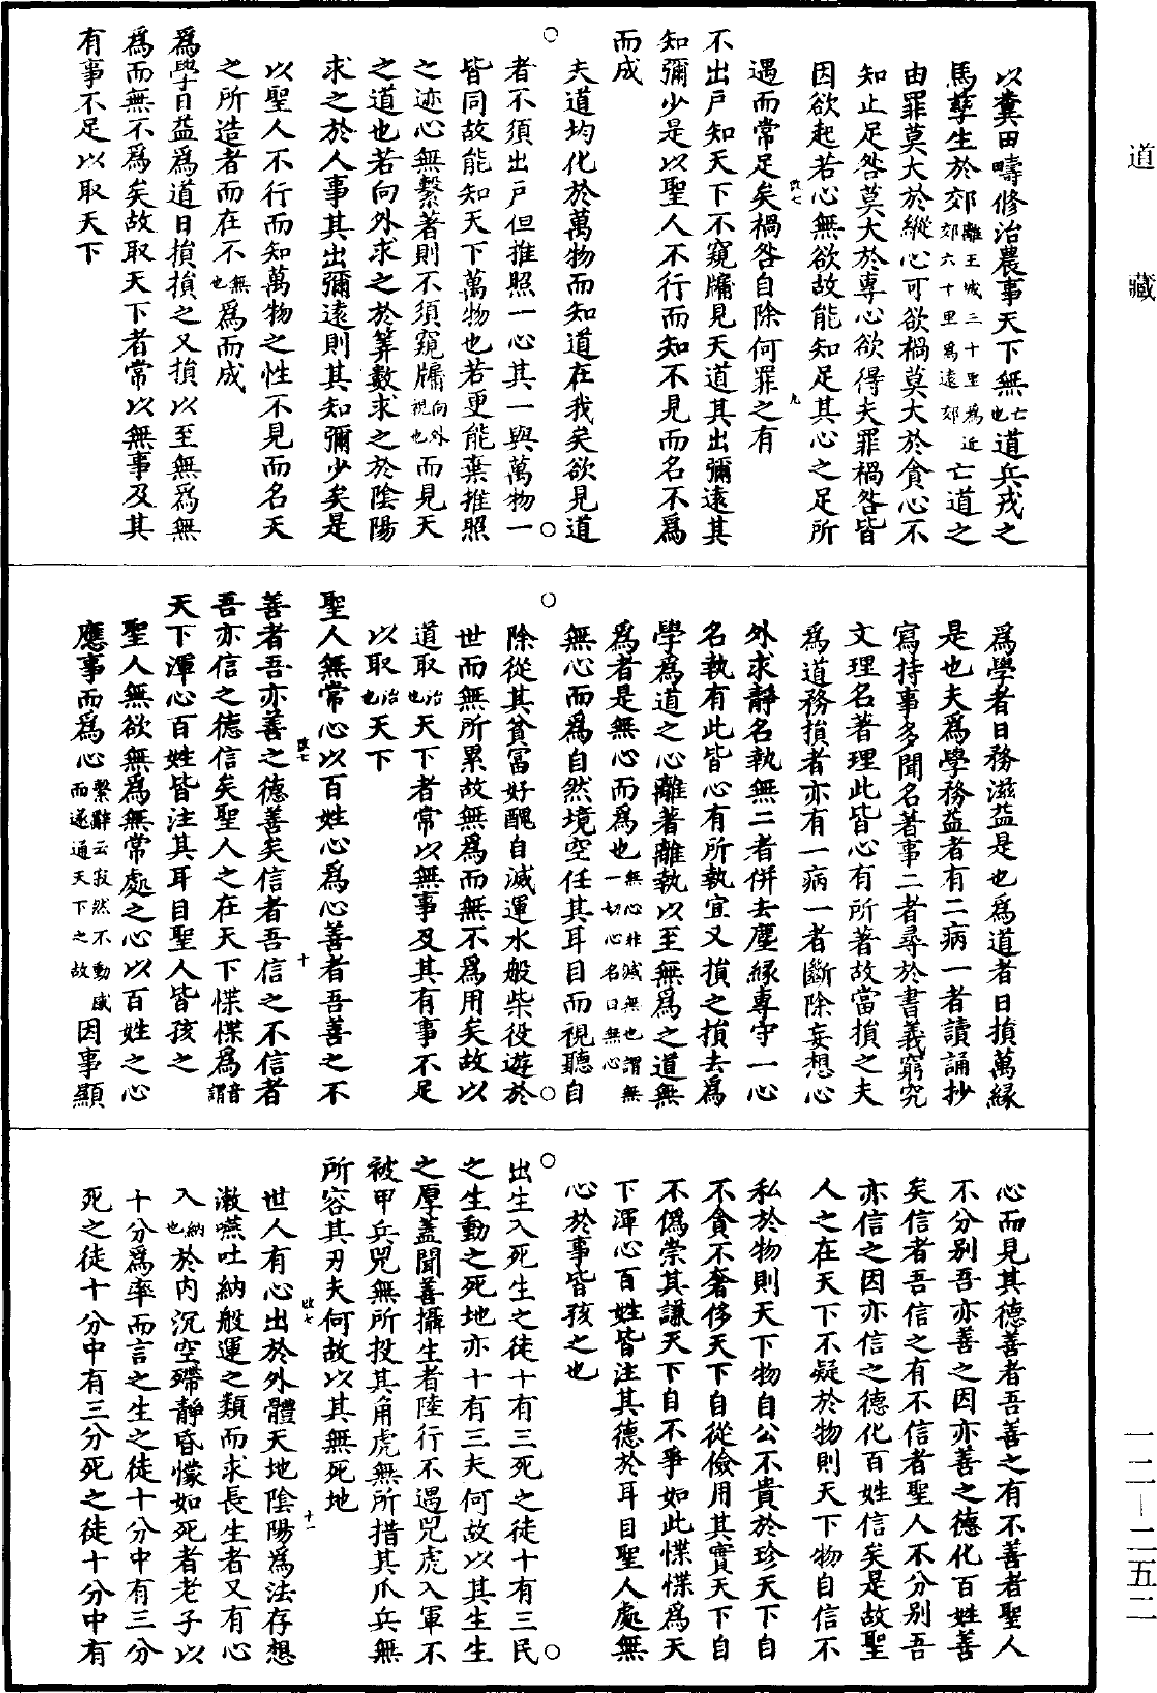 道藏
以糞田疇修治農事天下無亡也道兵戎之
馬孽生於郊離王城三十里為近郊六十里為遠郊亡道之
由罪莫大於縱心可欲禍莫大於貪心不
知止足咎莫大於專心欲得夫罪禍咎皆
因欲起若心無欲故能知足其心之足所
遇而常足矣禍咎自除何罪之有
改七 九
不出戶知天下不窺牖見天道其出彌遠其
知彌少是以聖人不行而知不見而名不為
而成
夫道均化於萬物而知道在我矣欲見道
者不須出戶但推照一心其一與萬物一
皆同故能知天下萬物也若更能棄推照
之迹心無繫著則不須窺牖向外視也而見天
之道也若向外求之於筭數求之於陰陽
求之於人事其出彌遠則其知彌少矣是
以聖人不行而知萬物之性不見而名天
之所造者而在不無也為而成
為學日益為道日損損之又損以至無為無
為而無不為矣故取天下者常以無事及其
有事不足以取天下
為學者日務滋益是也為道者日損萬緣
是也夫為學務益者有二病一者讀誦抄
寫持事多聞名著事二者尋於書義窮究
文理名著理此皆心有所著故當損之夫
為道務損者亦有一病一者斷除妄想心
外求靜名執無二者併去塵緣專守一心
名執有此皆心有所執宜又損之損去為
學為道之心離著離執以至無為之道無
為者是無心而為也無心非滅無也謂無一切心名曰無心
無心而為自然境空任其耳目而視聽自
除從其貧富好醜自滅運水般柴役遊於
世而無所累故無為而無不為用矣故以
道取治也天下者常以無事及其有事不足
以取治也天下
改七 十
聖人無常心以百姓心為心善者吾善之不
善者吾亦善之德善矣信者吾信之不信者
吾亦信之德信矣聖人之在天下惵惵為音謂
天下渾心百姓皆注其耳目聖人皆孩之
聖人無欲無為無常處之心以百姓之心
應事而為心繫辭云寂然不動感而遂通天下之故因事顯
心而見其德善者吾善之有不善者聖人
不分別吾亦善之因亦善之德化百姓善
矣信者吾信之有不信者聖人不分別吾
亦信之因亦信之德化百姓信矣是故聖
人之在天下不疑於物則天下物自信不
私於物則天下物自公不貴於珍天下自
不貪不奢侈天下自從儉用其實天下自
不偽崇其謙天下自不爭如此惵惵為天
下渾心百姓皆注其德於耳目聖人處無
心於事皆孩之也
出生入死生之徒十有三死之徒十有三民
之生動之死地亦十有三夫何故以其生生
之厚蓋聞善攝生者陸行不遇兕虎入軍不
被甲兵兕無所投其角虎無所措其爪兵無
所容其刃夫何故以其無死地
改七 十一
世人有心出於外體天地陰陽為法存想
漱嚥吐納般運之類而求長生者又有心
入納也於內沉空殢靜昏懞如死者老子以
十分為率而言之生之徒十分中有三分
死之徒十分中有三分死之徒十分中有
一二—二五二